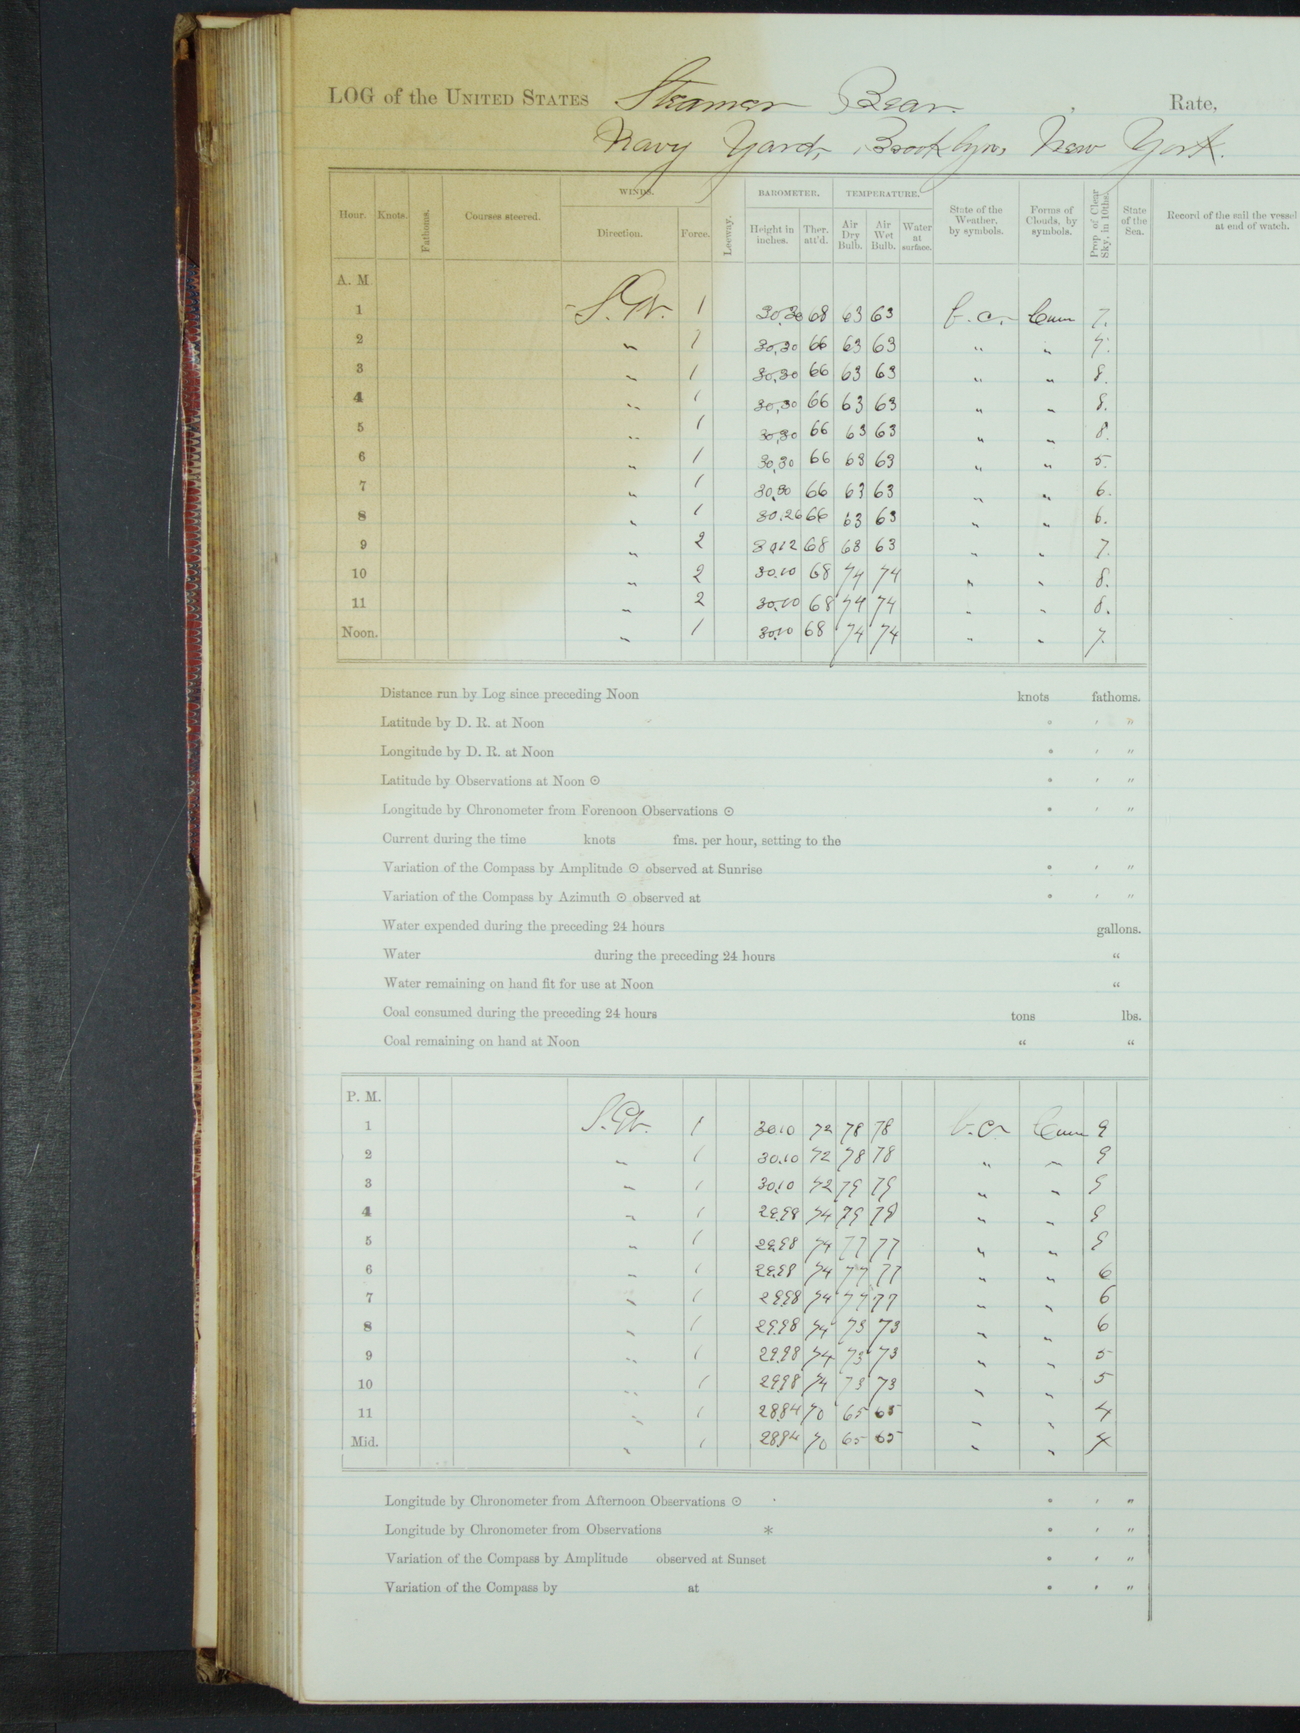 LOG of the UNITED STATES Steamer Bear. , Rate,
Navy Yard, Brooklyn, New York.
Hour. Knots. Fathoms. Courses steered. WINDS. Direction. Force. Leeway. BAROMETER. Height in inches. Ther. att'd. TEMPERATURE. Air Dry Bulb. Air Wet Bulb. Water at surface. State of the Weather, by symbols. Forms of Clouds, by symbols. Prop. of Clear Sky, in 10ths. State of the Sea. Record of the sail the vessel at end of watch.
A. M.
1 S.W. 1 30.30 68 63 63 b.c. Cum 7.
2 " 1 30,30 66 63 63 " " 7.
3 " 1 30,30 66 63 63 " " 8.
4 " 1 30,30 66 63 63 " " 8.
5 " 1 30,30 66 63 63 " " 8.
6 " 1 30,30 66 63 63 " " 5.
7 " 1 30,30 66 63 63 " " 6.
8 " 1 30.26 66 63 63 " " 6.
9 " 2 30.12 68 68 63 " " 7.
10 " 2 30.10 68 74 74 " " 8.
11 " 2 30.10 68 74 74 " " 8.
Noon. " 1 30.10 68 74 74 " " 7.
Distance run by Log since preceding Noon knots fathoms.
Latitude by D. R. at Noon ° ' "
Longitude by D. R. at Noon ° ' "
Latitude by Observations at Noon ☉ ° ' "
Longitude by Chronometer from Forenoon Observations ☉ ° ' "
Current during the time knots fms. per hour, setting to the
Variation of the Compass by Amplitude ☉ observed at Sunrise ° ' "
Variation of the Compass by Azimuth ☉ observed at ° ' "
Water expended during the preceding 24 hours gallons.
Water during the preceding 24 hours "
Water remaining on hand fit for use at Noon "
Coal consumed during the preceding 24 hours tons lbs.
Coal remaining on hand at Noon " "
P. M.
1 S.W. 1 30.10 72 78 78 b.c. Cum 9
2 " 1 30.10 72 78 78 " " 9
3 " 1 30.10 72 79 79 " " 9
4 " 1 29.98 74 79 79 " " 9
5 " 1 29.98 74 77 77 " " 9
6 " 1 29.98 74 77 77 " " 6
7 " 1 29.98 74 77 77 " " 6
8 " 1 29.98 74 73 73 " " 6
9 " 1 29.98 74 73 73 " " 5
10 " 1 29.98 74 73 73 " " 5
11 " 1 28.84 70 65 65 " " 4
Mid. " 1 28.84 70 65 65 " " 4
Longitude by Chronometer from Afternoon Observations ☉ ° ' "
Longitude by Chronometer from Observations * ° ' "
Variation of the Compass by Amplitude observed at Sunset ° ' "
Variation of the Compass by at ° ' "